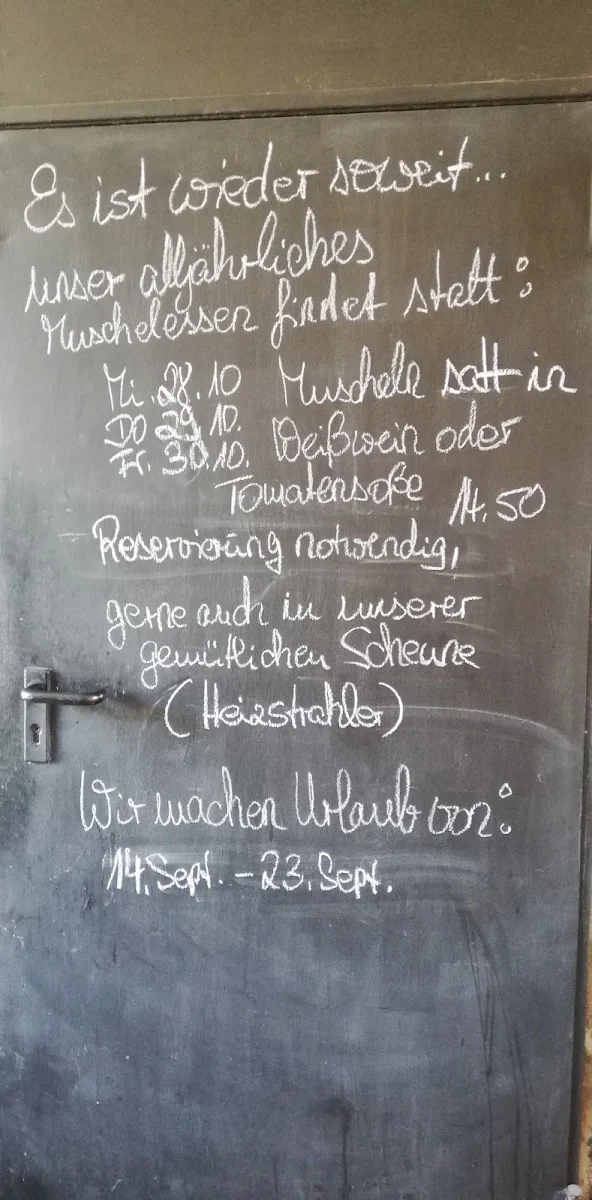 Es ist wieder soweit...
unser alljährliches
Muschelessen findet statt:
Mi. 28.10 Muscheln satt in
Do 29.10. Weißwein oder
Fr. 30.10.
Tomatensoße 14.50
Reservierung notwendig,
gerne auch in unserer
gemütlichen Scheune
(Heizstrahler)
Wir machen Urlaub von:
14.Sept. - 23.Sept.